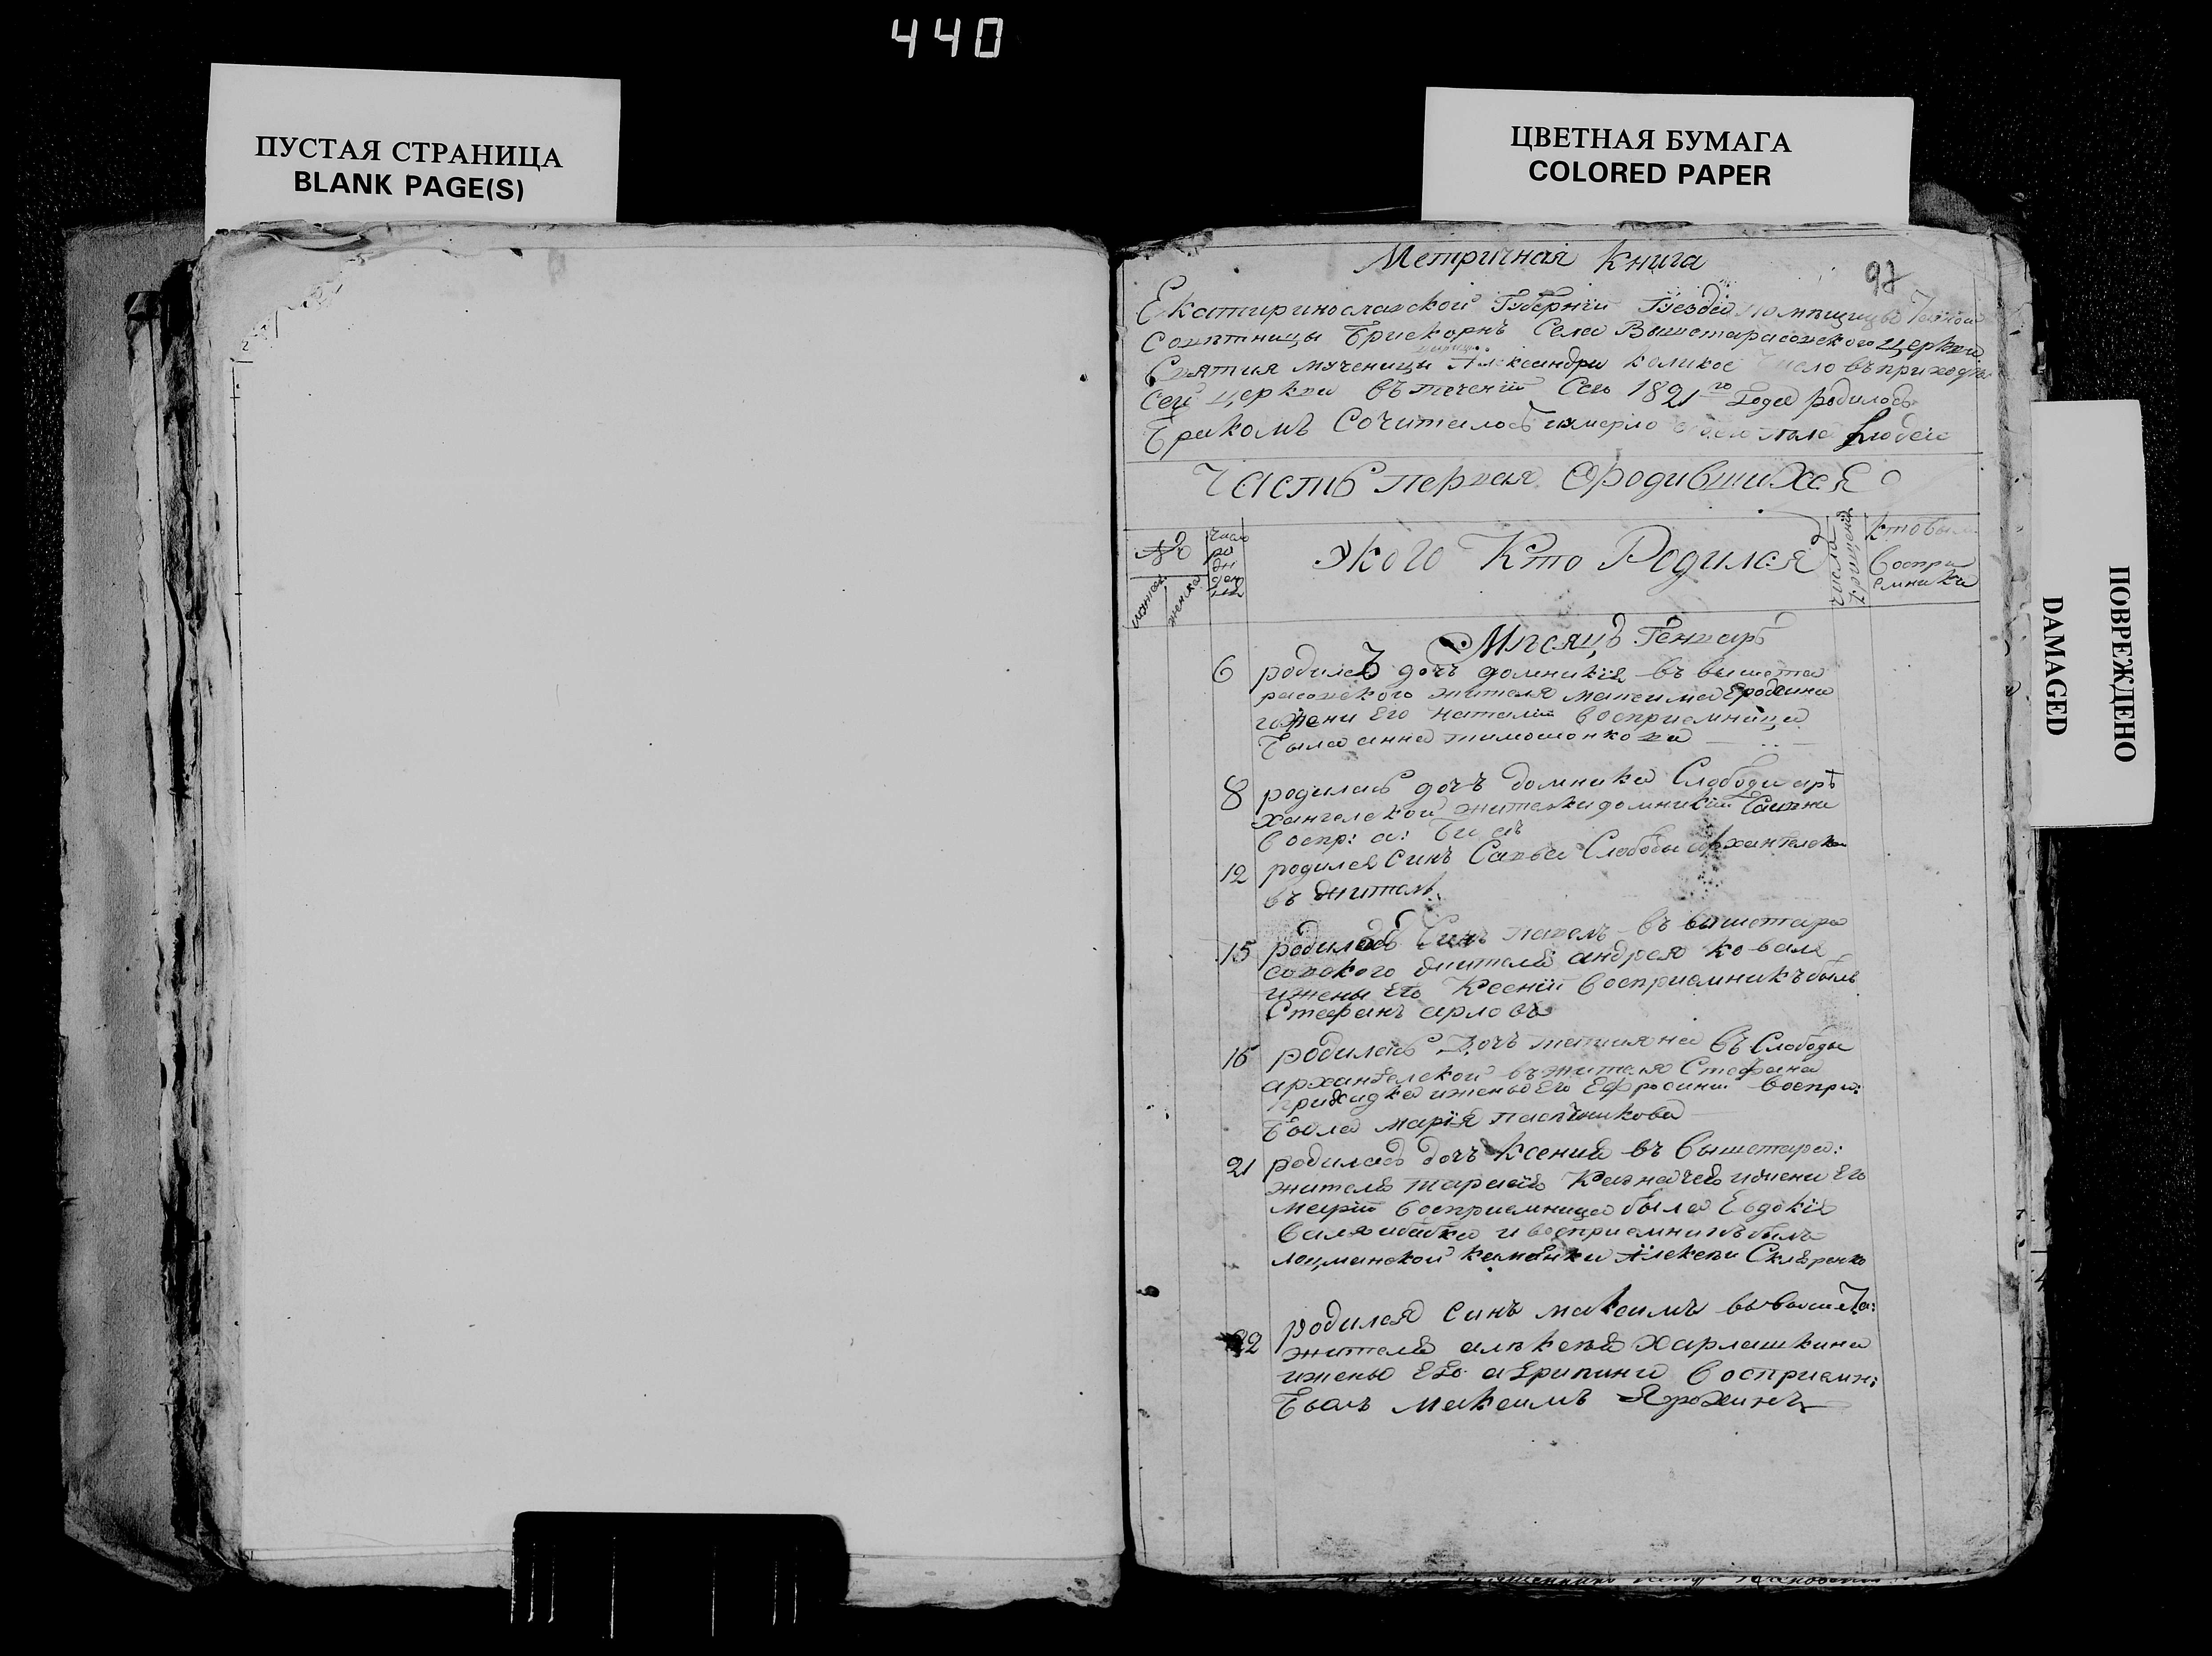 440
ПУСТАЯ СТРАНИЦА
BLANK PAGE(S)
ЦВЕТНАЯ БУМАГА
COLORED PAPER
ПОВРЕЖДЕНО
DAMAGED
Метричная Книга
97
Екатиринославской Губернїи Помпщицы
совптницы Брискорнъ Села Вышетарасовского церкви
Святия мученицы Александри каликое число въ приходъ
Сей церкви въ теченїи Сего 1821го Года родилось
Бракомъ Сочиталось иумерло пола Людей
Часть первая Ородившихся
№
число
ро
жде
укого Кто Родился
числа
крещенїя
ктобыл
Воспри
емники
Мпсяцъ Генварь
6 родилась дочъ домникїя въ вышета
расовского жителя максима
ижени Его наталїи воспрїемница
Была анна тимошонкова
8 родилась дочъ домника Слободи арх
хангелской жителки домникїи
Воспр: а:
12 родился синъ Савва Слободы архангелско
въ жителя
15 родилась Синъ павелъ въ вышетара
совского жителя андрея ковала
ижены Его Ксенїи Восприемникъ былъ
Стефанъ арловъ
16 родилась Дочъ татияна въ Слободы
архангелской въ жителя Стефана
ижены Его Ефросинии Воспри:
Была марїя пасъчникова
21 родилась дочъ Ксения въ Вышетара:
жителя тарасїя Казначея ижени Его
марїи Восприемница была Евдокїя
и восприемникъ былъ
лоцманской каменки Алексъи Скляренко
22 родился синъ максимъ въ Вышета:
жителя алъксъя Харлашкина
ижены Его агрипини Восприемн:
Былъ Максимъ Ярохинъ